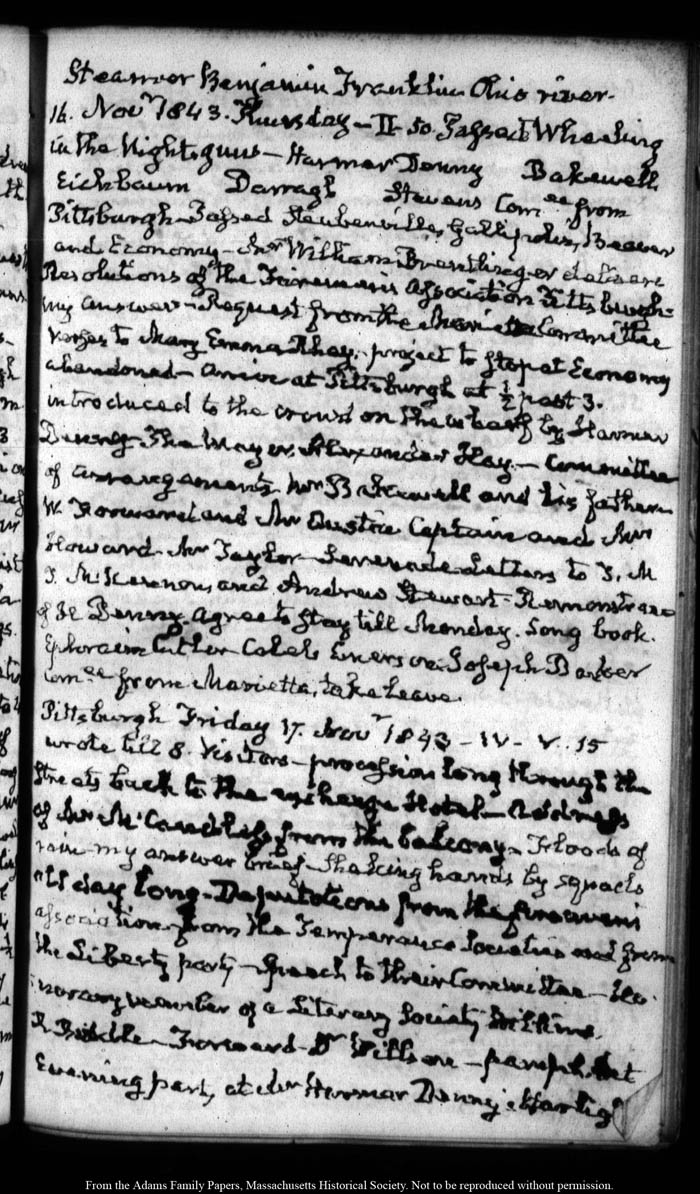 Steamer Benjamin Franklin Ohio river.
16. Novr. 1843. Thursday – II. 50. Passed Wheeling
in the Night. guns – Harmar Denny Bakewell
Eichbaum Darragh Stevens Comee. from
Pittsburgh – Passed Steubenville, Gallipolis, Beaver
and Economy – Mr. William Brentlinger delivers
Resolutions of the Firemen's Association Pittsburgh
my answer – Request from the Marietta Committee
verses to Mary Emma Rhay. project to stop at Economy
abandoned – arrive at Pittsburgh at ½ past 3.
introduced to the crowd on the wharf by Harmar
Denny – The Mayor, Alexander Hay. – Committee
of arrangements Mr. Bakewell and his father
W. Forward and Mr. Captain and Mr.
Howard – Mr. Taylor – Serenade Letters to T. M
T. McKennon, and Andrew Stewart – Remonstrance
of H Denny. agree to stay till Monday. Song book.
Ephraim Cutler Caleb Emerson Joseph Barker
Comee. from Marietta, take leave.
Pittsburgh Friday 17. Novr. 1843 – IV – V. 15
wrote till 8. Visitors – procession long through the
Streets back to the exchange Hotel – Address
of Mr. McCandless from the balcony – Floods of
rain my answer brief – Shaking hands by squads
all day long – Deputations from the firemen's
association – from the Temperance Societies and from
the Liberty party – Speech to their Committee – Ho-
norary member of a Literary Society
R Biddle – Forward – Dr. Willson – pamphlet
Evening party at Mr. Harmar Denny's
From the Adams Family Papers, Massachusetts Historical Society. Not to be reproduced without permission.